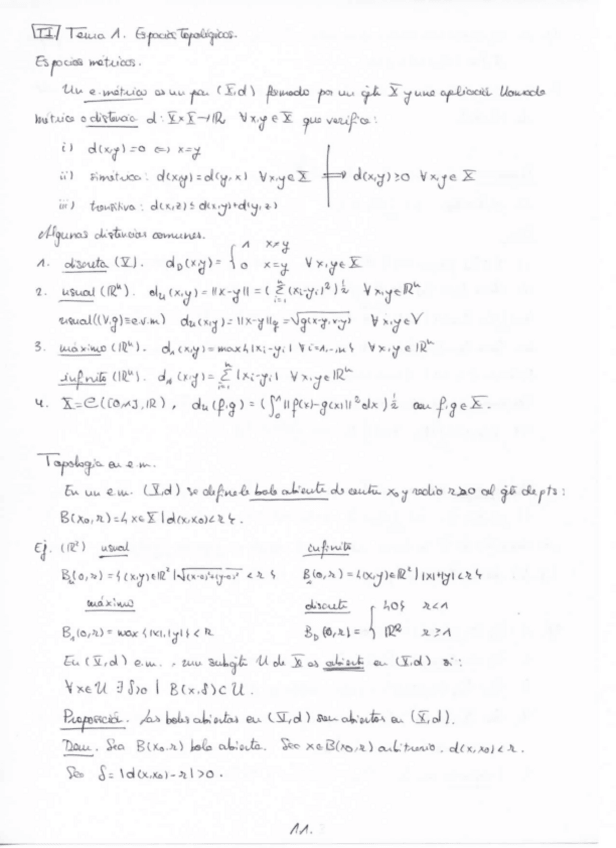 II/ Tema 1. Espacios Topológicos.
Espacios métricos.
Un e.métrico es un par (X,d) formado por un cjto X y una aplicación llamada
métrica o distancia d: X×X→ℝ ∀x,y∈X que verifica:
i) d(x,y)=0 ⇔ x=y
ii) simétrica: d(x,y)=d(y,x) ∀x,y∈X ⟹ d(x,y)≥0 ∀x,y∈X
iii) transitiva: d(x,z)≤d(x,y)+d(y,z)
Algunas distancias comunes.
1. discreta (X). d_D(x,y)={ 1 x≠y
0 x=y ∀x,y∈X
2. usual (ℝⁿ). d_u(x,y)=||x-y||=(∑_{i=1}^n (x_i-y_i)²)^{1/2} ∀x,y∈ℝⁿ
usual((V,g)≡e.v.m) d_u(x,y)=||x-y||_g=√g(x-y,x-y) ∀x,y∈V
3. máximo (ℝⁿ). d_1(x,y)=max{|x_i-y_i| ∀i=1,...,n} ∀x,y∈ℝⁿ
infinito (ℝⁿ). d_1(x,y)=∑_{i=1}^n |x_i-y_i| ∀x,y∈ℝⁿ
4. X=C([0,1],ℝ), d_u(f,g)=(∫_0^1 ||f(x)-g(x)||²dx)^{1/2} con f,g∈X.
Topología en e.m.
En un e.m. (X,d) se define la bola abierta de centro x₀ y radio r>0 al cjto de pts:
B(x₀,r)={x∈X | d(x,x₀)<r}.
Ej. (ℝ²) usual infinito
B_u(0,r)={(x,y)∈ℝ² | √(x-0)²+(y-0)² <r} B(0,r)={(x,y)∈ℝ² | |x|+|y|<r}
máximo discreta { {0} r<1
B_1(0,r)=max{|x|,|y|}<r B_D(0,r)= ℝ² r≥1
En (X,d) e.m., un subcjto U de X es abierto en (X,d) si:
∀x∈U ∃δ>0 | B(x,δ)⊂U.
Proposición. Las bolas abiertas en (X,d) son abiertos en (X,d).
Dem. Sea B(x₀,r) bola abierta. Sea x∈B(x₀,r) arbitrario. d(x,x₀)<r.
Sea δ=|d(x,x₀)-r|>0.
11.